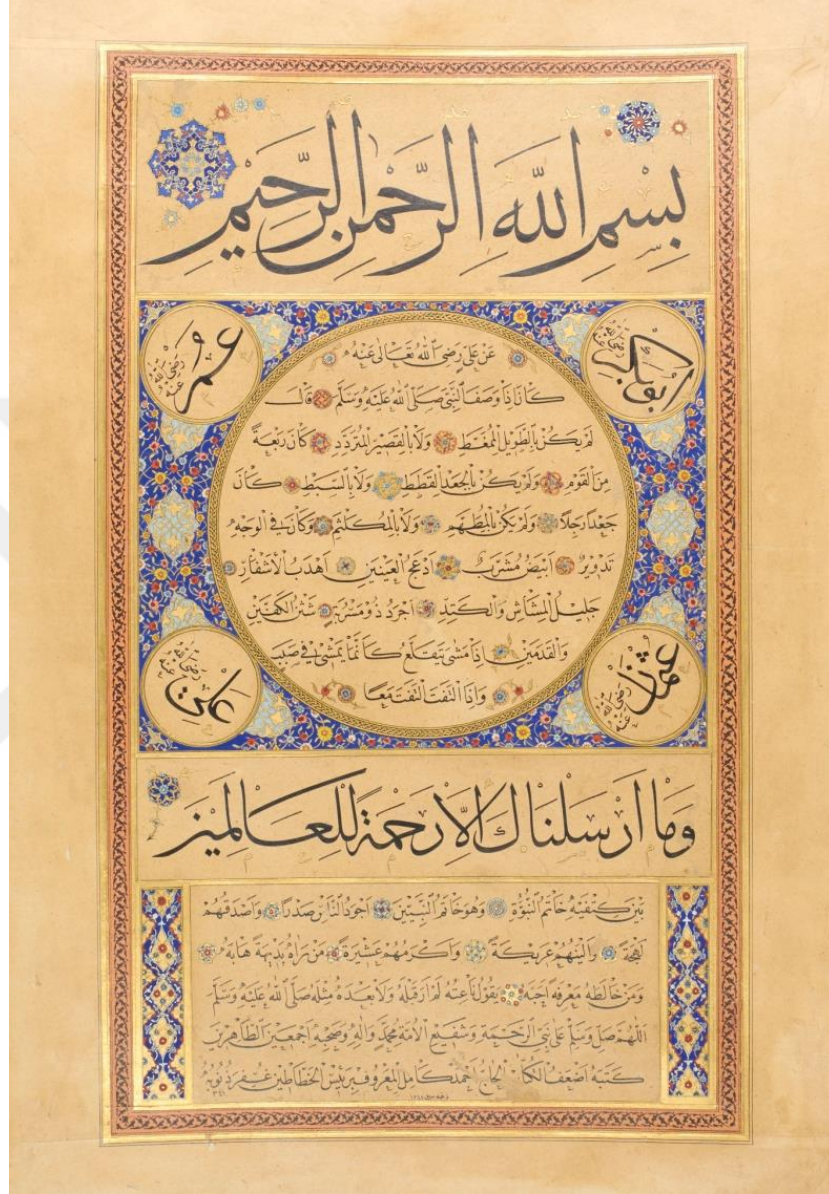 بِسْمِ اللّٰهِ الرَّحْمٰنِ الرَّحِيمِ
ابوبكر رضى الله عنه
عمر رضى الله عنه
عَنْ عَلِىٍّ رَضِىَ اللّٰهُ تَعَالٰى عَنْهُ
كَانَ اِذَا وَصَفَ النَّبِىَّ صَلَّى اللّٰهُ عَلَيْهِ وَسَلَّمَ قَالَ
لَمْ يَكُنْ بِالطَّوِيلِ الْمُمَّغِطِ وَلَا بِالْقَصِيرِ الْمُتَرَدِّدِ كَانَ رَبْعَةً
مِنَ الْقَوْمِ وَلَمْ يَكُنْ بِالْجَعْدِ الْقَطَطِ وَلَا بِالسَّبْطِ كَانَ
جَعْدًا رَجِلًا وَلَمْ يَكُنْ بِالْمُطَهَّمِ وَلَا بِالْمُكَلْثَمِ وَكَانَ فِى الْوَجْهِ
تَدْوِيرٌ اَبْيَضُ مُشْرَبٌ اَدْعَجُ الْعَيْنَيْنِ اَهْدَبُ الْاَشْفَارِ
جَلِيلُ الْمُشَاشِ وَالْكَتَدِ اَجْرَدُ ذُو مَسْرُبَةٍ شَثْنُ الْكَفَّيْنِ
وَالْقَدَمَيْنِ اِذَا مَشٰى يَتَقَلَّعُ كَاَنَّمَا يَمْشِى فِى صَبَبٍ
وَاِذَا الْتَفَتَ الْتَفَتَ مَعًا
عثمان رضى الله عنه
على رضى الله عنه
وَمَا اَرْسَلْنَاكَ اِلَّا رَحْمَةً لِلْعَالَمِينَ
بَيْنَ كَتِفَيْهِ خَاتَمُ النُّبُوَّةِ وَهُوَ خَاتَمُ النَّبِيِّينَ اَجْوَدُ النَّاسِ صَدْرًا وَاَصْدَقُهُمْ
لَهْجَةً وَاَلْيَنُهُمْ عَرِيكَةً وَاَكْرَمُهُمْ عَشِيرَةً مَنْ رَاٰهُ بَدِيهَةً هَابَهُ
وَمَنْ خَالَطَهُ مَعْرِفَةً اَحَبَّهُ يَقُولُ نَاعِتُهُ لَمْ اَرَ قَبْلَهُ وَلَا بَعْدَهُ مِثْلَهُ صَلَّى اللّٰهُ عَلَيْهِ وَسَلَّمَ
اَللّٰهُمَّ صَلِّ وَسَلِّمْ عَلٰى نَبِىِّ الرَّحْمَةِ وَشَفِيعِ الْاُمَّةِ مُحَمَّدٍ وَاٰلِهِ وَصَحْبِهِ اَجْمَعِينَ الطَّاهِرِينَ
كَتَبَهُ اَضْعَفُ الْكُتَّابِ الْحَاجُّ اَحْمَدُ كَامِلُ الْمَعْرُوفُ بِرَئِيسِ الْخَطَّاطِينَ غُفِرَ ذُنُوبُهُ